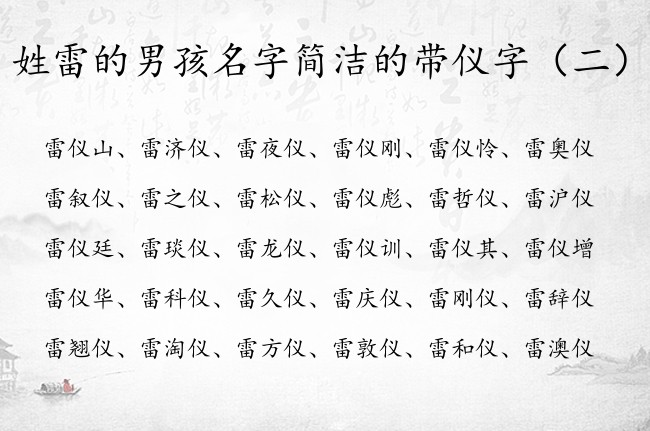 姓雷的男孩名字简洁的带仪字（二）
雷仪山、雷济仪、雷夜仪、雷仪刚、雷仪怜、雷奥仪
雷叙仪、雷之仪、雷松仪、雷仪彪、雷哲仪、雷沪仪
雷仪廷、雷琰仪、雷龙仪、雷仪训、雷仪其、雷仪增
雷仪华、雷科仪、雷久仪、雷庆仪、雷刚仪、雷辞仪
雷翘仪、雷淘仪、雷方仪、雷敦仪、雷和仪、雷澳仪